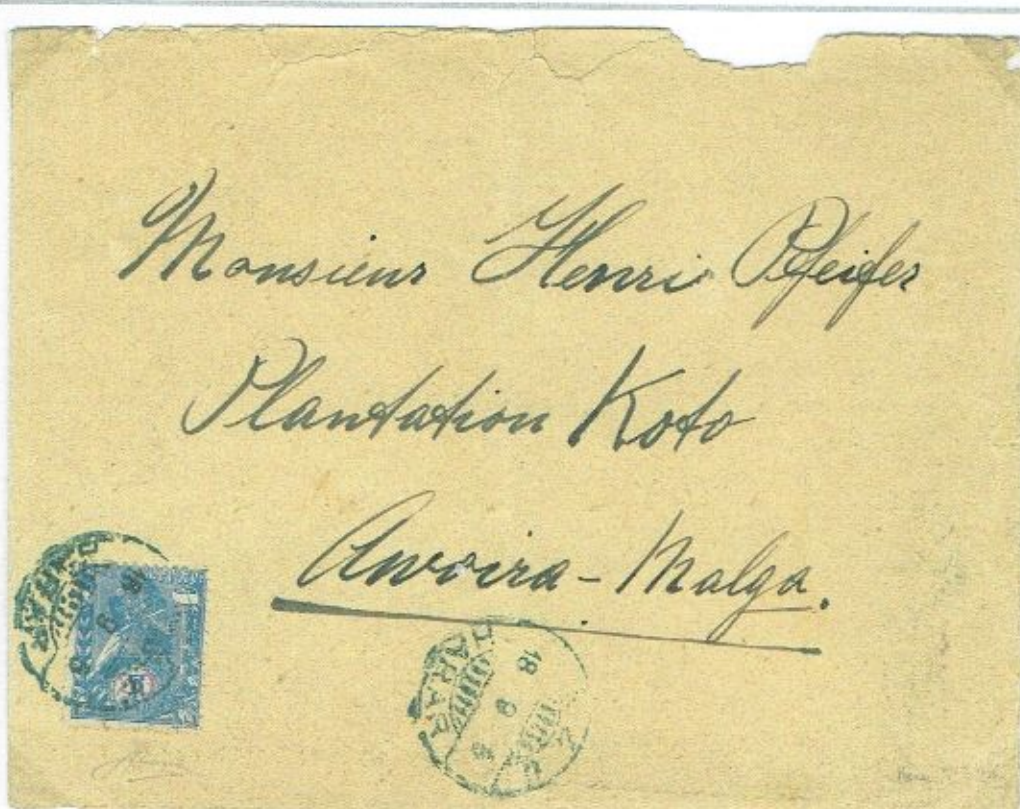 Monsieur Henri Pfeifer
Plantation Koto
Awoira-Malga.
HARAR
18
9